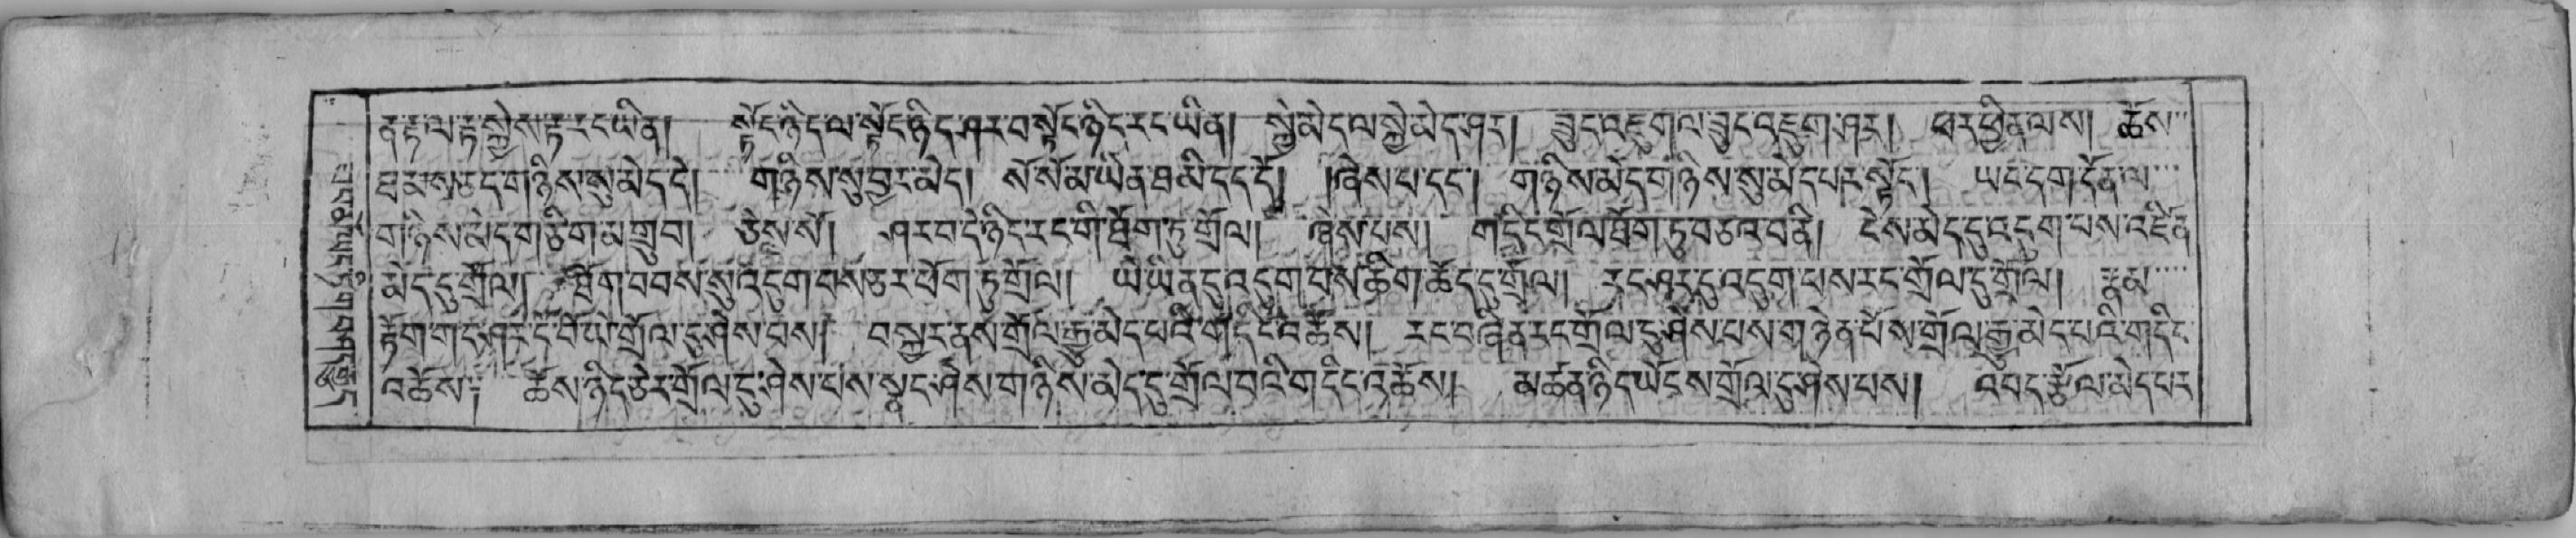 ན་རྟ་ལ་རྟ་སྐྱེས་རྟ་རང་ཡིན། སྟོང་ཉིད་ལ་སྟོང་ཉིད་ཤར་བ་སྟོང་ཉིད་རང་ཡིན། སྐྱེ་མེད་ལ་སྐྱེ་མེད་ཤར། ཟུང་འཇུག་ལ་ཟུང་འཇུག་ཤར། ཕར་ཕྱིན་ལས། ཆོས་
ཐམས་ཅད་གཉིས་སུ་མེད་དེ། གཉིས་སུ་བྱར་མེད། སོ་སོ་མ་ཡིན་ཐ་མི་དད་དོ། །ཞེས་པ་དང་། གཉིས་མེད་གཉིས་སུ་མེད་པར་སྟོང་། ཡང་དག་དོན་ལ་
གཉིས་མེད་གཅིག་མ་གྲུབ། ཅེས་སོ། ཤར་བ་དེ་ཉིད་རང་གི་ཐོག་ཏུ་གྲོལ། ཞེས་པས། གདིང་གྲོལ་ཐོག་ཏུ་བཅའ་བ་ནི། ངེས་མེད་དུ་འདུག་པས་འཛིན་
མེད་དུ་གྲོལ། ཐོག་བབས་སུ་འདུག་པས་ཅར་ཕོག་ཏུ་གྲོལ། ཡེ་ཡིན་དུ་འདུག་པས་ཆིག་ཆོད་དུ་གྲོལ། རང་ཤར་དུ་འདུག་པས་རང་གྲོལ་དུ་གྲོལ། རྣམ་
རྟོག་གང་ཤར་ངོ་བོ་ཡེ་གྲོལ་དུ་ཤེས་པས། བསྐྱར་ནས་གྲོལ་རྒྱུ་མེད་པའི་གདིང་འཆོས། རང་བཞིན་རང་གྲོལ་དུ་ཤེས་པས་གཉེན་པོས་གྲོལ་རྒྱུ་མེད་པའི་གདིང་
འཆོས། ཆོས་ཉིད་ཅེར་གྲོལ་དུ་ཤེས་པས་སྣང་ཤེས་གཉིས་མེད་དུ་གྲོལ་བའི་གདིང་འཆོས། མཚན་ཉིད་ཡོངས་གྲོལ་དུ་ཤེས་པས། འབད་རྩོལ་མེད་པར